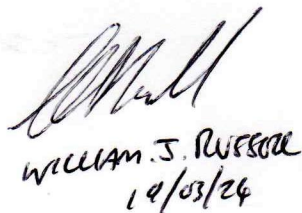 WILLIAM. J. RUSSELL
19/03/24